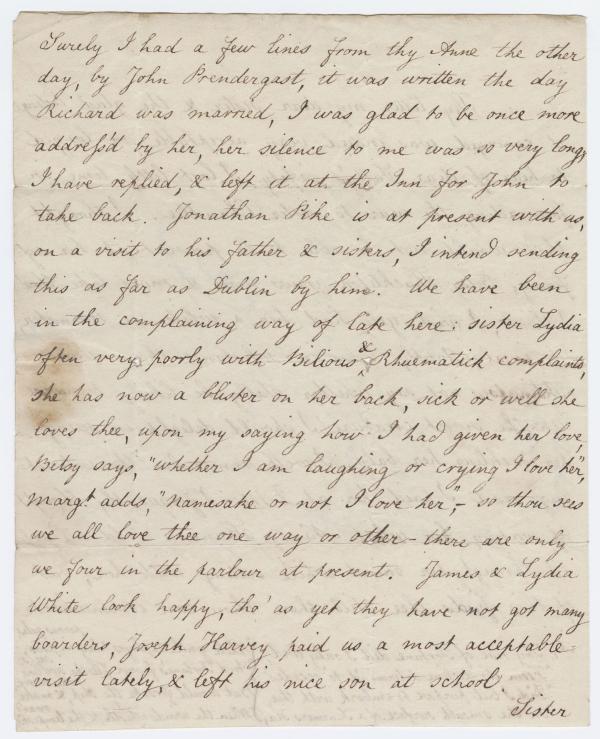 Surely I had a few lines from thy Anne the other
day, by John Prendergast, it was written the day
Richard was married, I was glad to be once more
address'd by her, her silence to me was so very long,
I have replied, & left it at the Inn for John to
take back. Jonathan Pike is at present with us,
on a visit to his father & sisters, I intend sending
this as far as Dublin by him. We have been
in the complaining way of late here: sister Lydia
often very poorly with Bilious & Rhuematick complaints,
she has now a blister on her back, sick or well she
loves thee, upon my saying how I had given her love,
Betsy says, "whether I am laughing or crying I love her",
Margt. adds, "namesake or not I love her",- so thou sees
we all love thee one way or other - there are only
we four in the parlour at present. James & Lydia
White look happy, tho' as yet they have not got many
boarders, Joseph Harvey paid us a most acceptable
visit lately, & left his nice son at school.
Sister